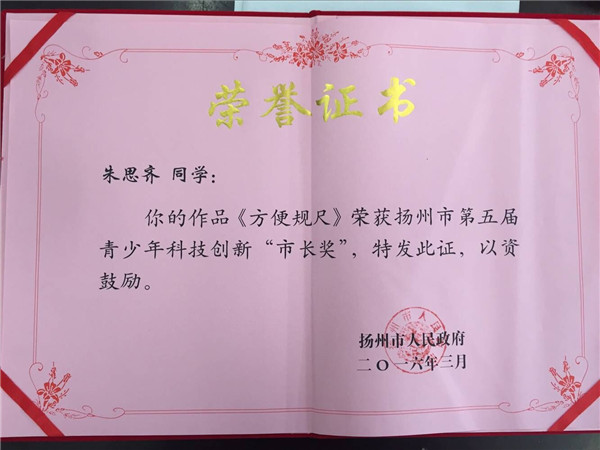 荣誉证书
朱思齐 同学：
你的作品《方便规尺》荣获扬州市第五届
青少年科技创新“市长奖”，特发此证，以资
鼓励。
扬州市人民政府
二〇一六年三月